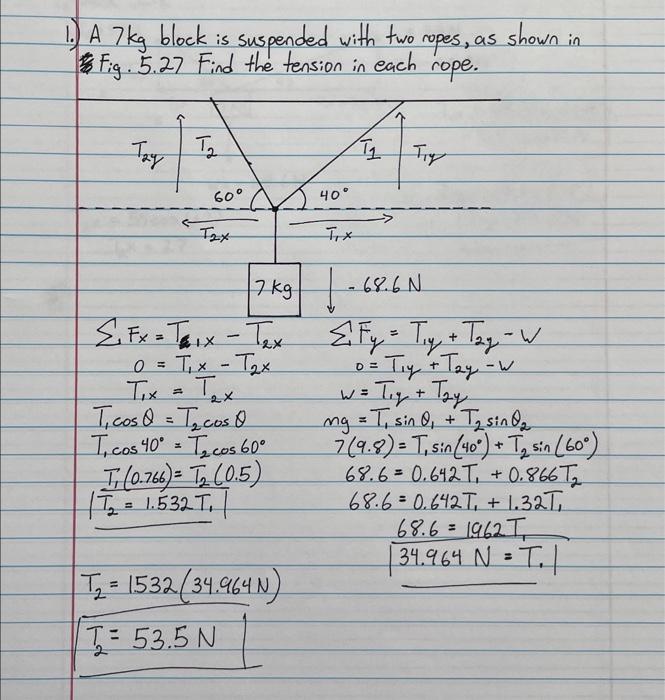 1.) A 7kg block is suspended with two ropes, as shown in
Fig. 5.27 Find the tension in each rope.
T2y T2 T1 T1y
60° 40°
T2x T1x
7 kg - 68.6 N
Σ Fx = T1x - T2x
0 = T1x - T2x
T1x = T2x
T1cosθ = T2cosθ
T1cos40° = T2cos60°
T1(0.766) = T2(0.5)
T2 = 1.532T1
Σ Fy = T1y + T2y - W
0 = T1y + T2y - W
W = T1y + T2y
mg = T1 sinθ1 + T2 sinθ2
7(9.8) = T1 sin(40°) + T2 sin(60°)
68.6 = 0.642T1 + 0.866T2
68.6 = 0.642T1 + 1.32T1
68.6 = 1.962T1
34.964 N = T1
T2 = 1532(34.964N)
T2 = 53.5 N